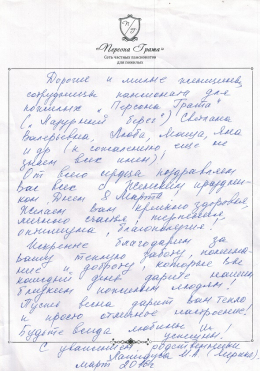 «Персона Грата»
Сеть частных пансионатов
для пожилых
Дорогие и милые женщины,
сотрудницы пансионата для
пожилых „Персона Грата"
(„Лазурный берег") Светлана
Валерьевна, Люба, Маша, Яна
и др. (к сожалению, еще не
знаем всех имен)!
От всего сердца поздравляем
вас всех с Женским праздни-
ком Днем 8 Марта.
Желаем вам крепкого здоровья,
много счастья, терпения,
оптимизма, благополучия!
Искренне благодарим за
вашу теплую заботу, понима-
ние и доброту, которые вы
каждый день дарите нашим
близким пожилым людям!
Пусть весна дарит вам тепло
и просто отличное настроение!
Будьте всегда любимы и
успешны!
С уважением родственники
Март